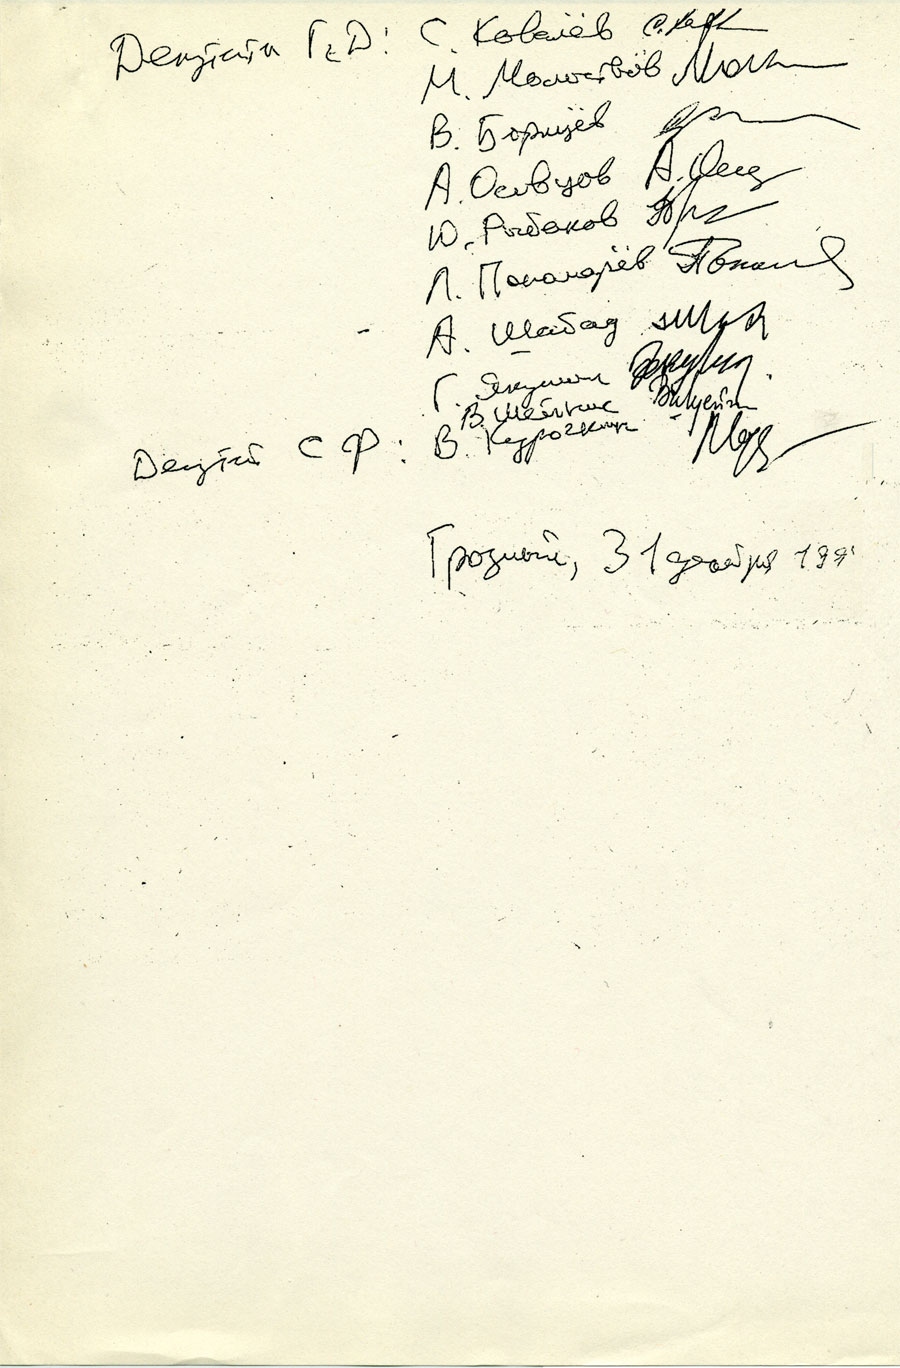 Депутаты ГД: С. Ковалёв
М. Молоствов
В. Борщёв
А. Осовцов А. Осов
Ю. Рыбаков
Л. Пономарёв
А. Шабад
Г. Якунин
В. Шейнис
Депутат СФ: В. Курочкин
Грозный, 31 декабря 199